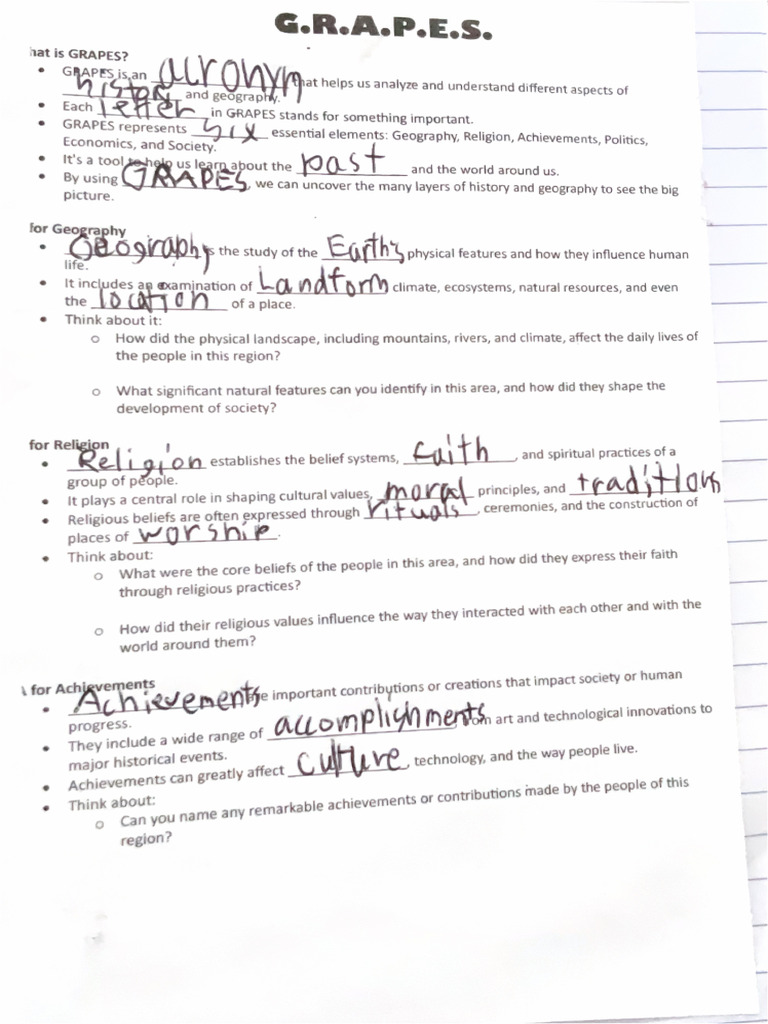 G.R.A.P.E.S.
hat is GRAPES?
• GRAPES is an acronym that helps us analyze and understand different aspects of
history and geography.
• Each letter in GRAPES stands for something important.
• GRAPES represents six essential elements: Geography, Religion, Achievements, Politics,
Economics, and Society.
• It's a tool to help us learn about the past and the world around us.
• By using GRAPES, we can uncover the many layers of history and geography to see the big
picture.
for Geography
• Geography is the study of the Earth's physical features and how they influence human
life.
• It includes an examination of Landform climate, ecosystems, natural resources, and even
the location of a place.
• Think about it:
o How did the physical landscape, including mountains, rivers, and climate, affect the daily lives of
the people in this region?
o What significant natural features can you identify in this area, and how did they shape the
development of society?
for Religion
• Religion establishes the belief systems, faith, and spiritual practices of a
group of people.
• It plays a central role in shaping cultural values, moral principles, and traditions
• Religious beliefs are often expressed through rituals, ceremonies, and the construction of
places of worship.
• Think about:
o What were the core beliefs of the people in this area, and how did they express their faith
through religious practices?
o How did their religious values influence the way they interacted with each other and with the
world around them?
for Achievements
• Achievements are important contributions or creations that impact society or human
progress.
• They include a wide range of accomplishments from art and technological innovations to
major historical events.
• Achievements can greatly affect culture, technology, and the way people live.
• Think about:
o Can you name any remarkable achievements or contributions made by the people of this
region?